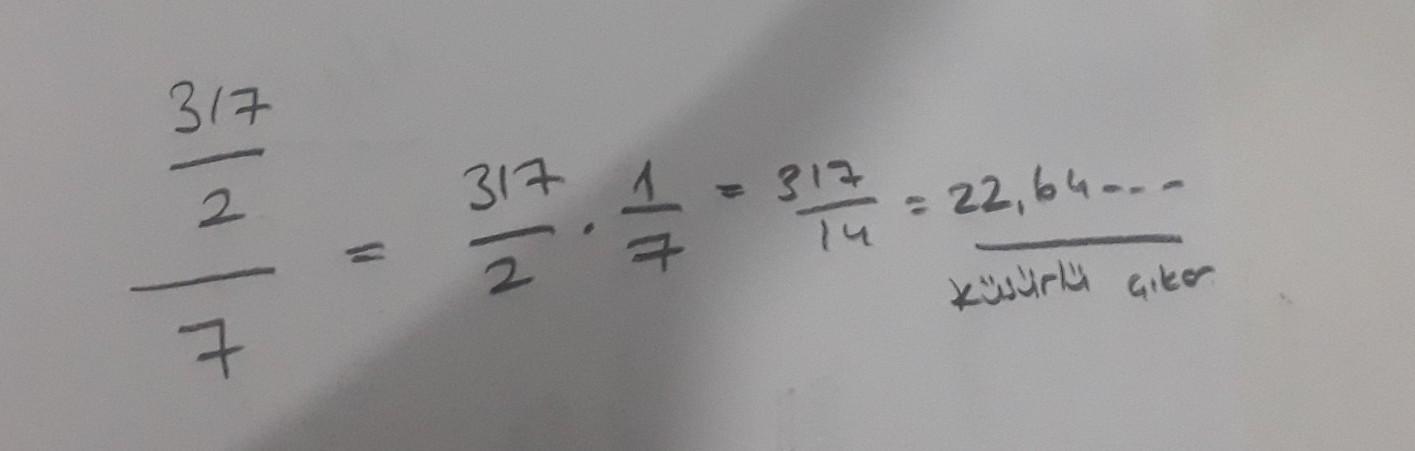 317/2 / 7 = 317/2 . 1/7 = 317/14 = 22,64---
küsürlü çıkar